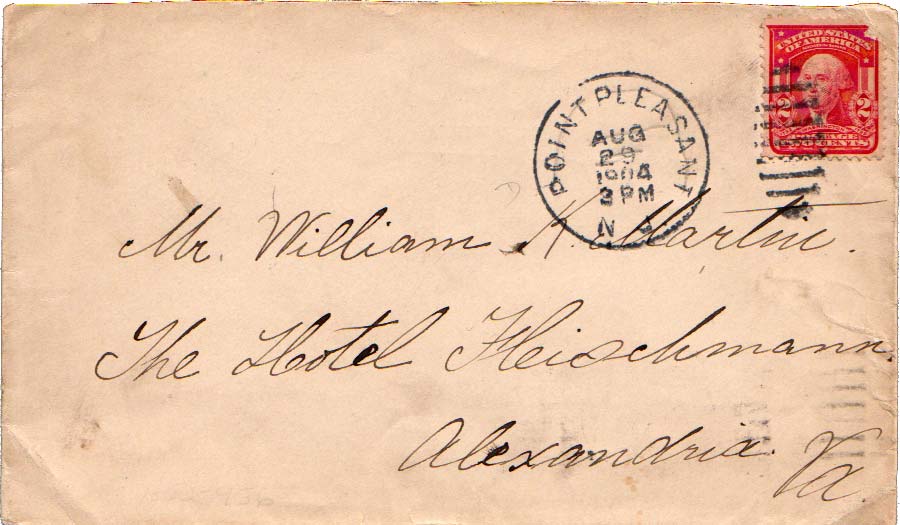 UNITED STATES
OF AMERICA
2 2
TWO CENTS
POINT PLEASANT
AUG
29
1904
3 PM
N
Mr. William K. Martin.
The Hotel Fleischmann.
Alexandria.
Va.